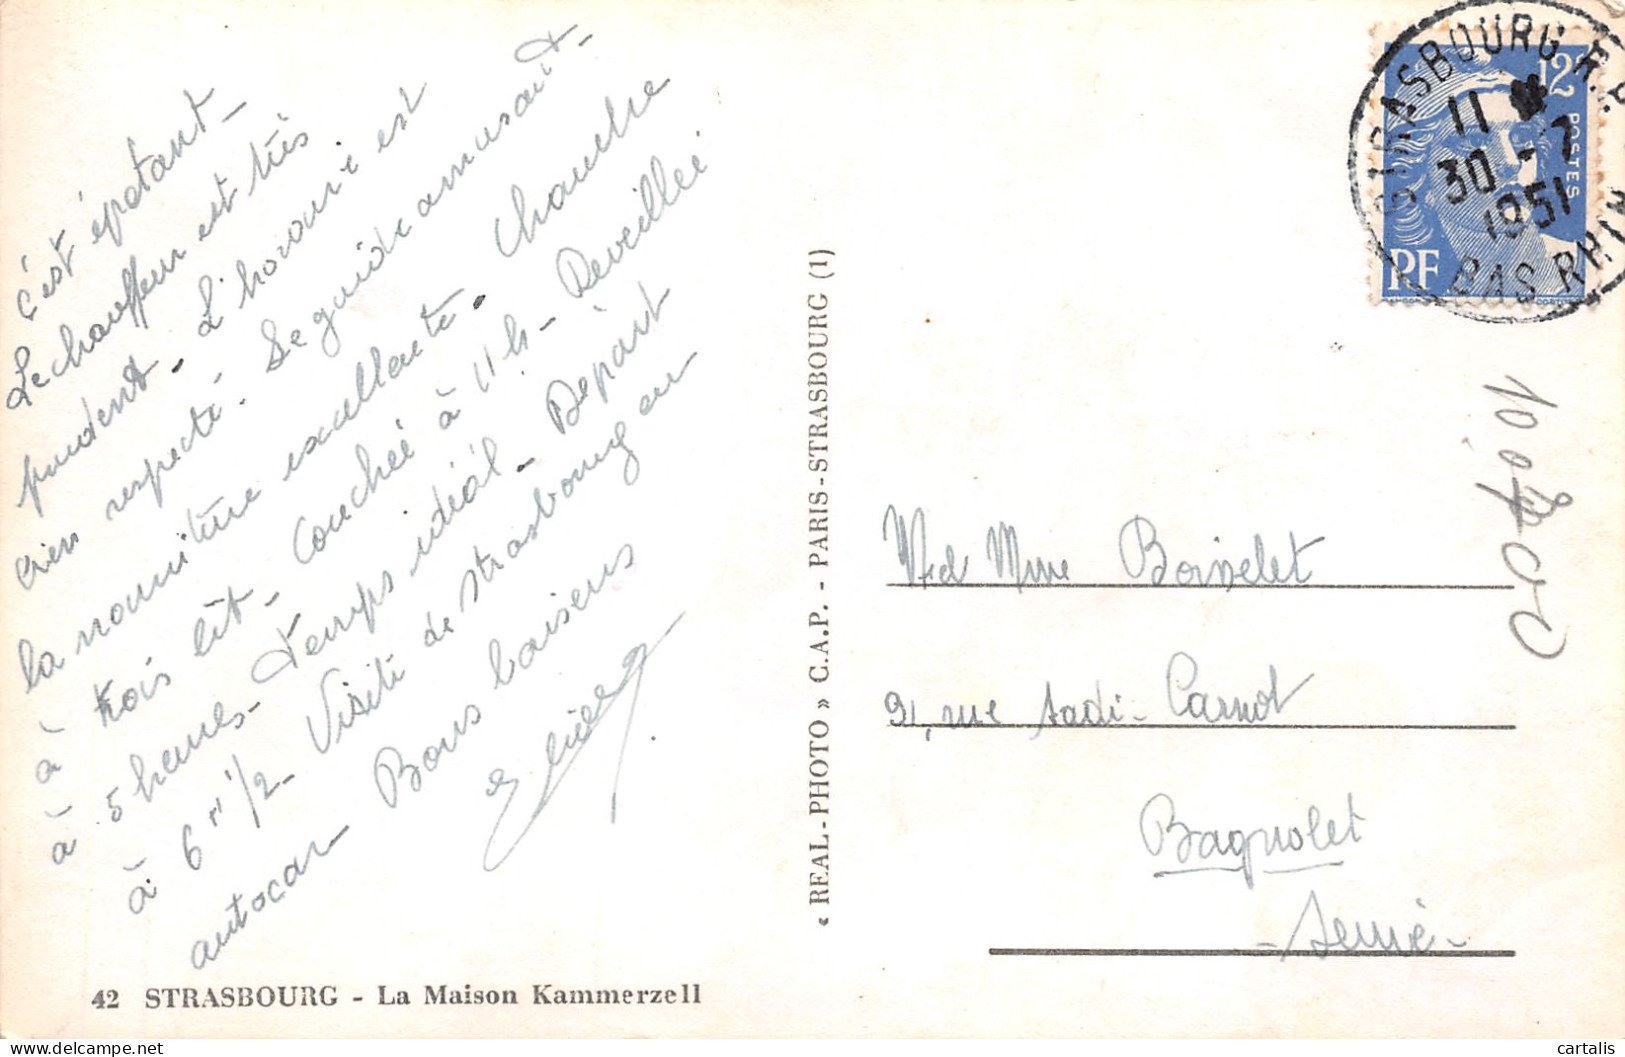 c'est épatant -
Le chauffeur est très
prudent - L'horaire est
bien respecté. Le guide amusant -
la nourriture excellente. Chambre
à trois lit - Couchée à 11 h - Reveillée
à 5 heures - temps idéal - Départ
à 6 h 1/2 - Visite de Strasbourg en
autocar - Bons baisers
42 STRASBOURG - La Maison Kammerzell
« REAL-PHOTO » C.A.P. - PARIS-STRASBOURG (1)
STRASBOURG R.P.
11
30 - 7
1951
BAS RHIN
12F
POSTES
RF
10
M et Mme Boivelet
91, rue Sadi-Carnot
Bagnolet
- Seine -
cartalis
delcampe.net